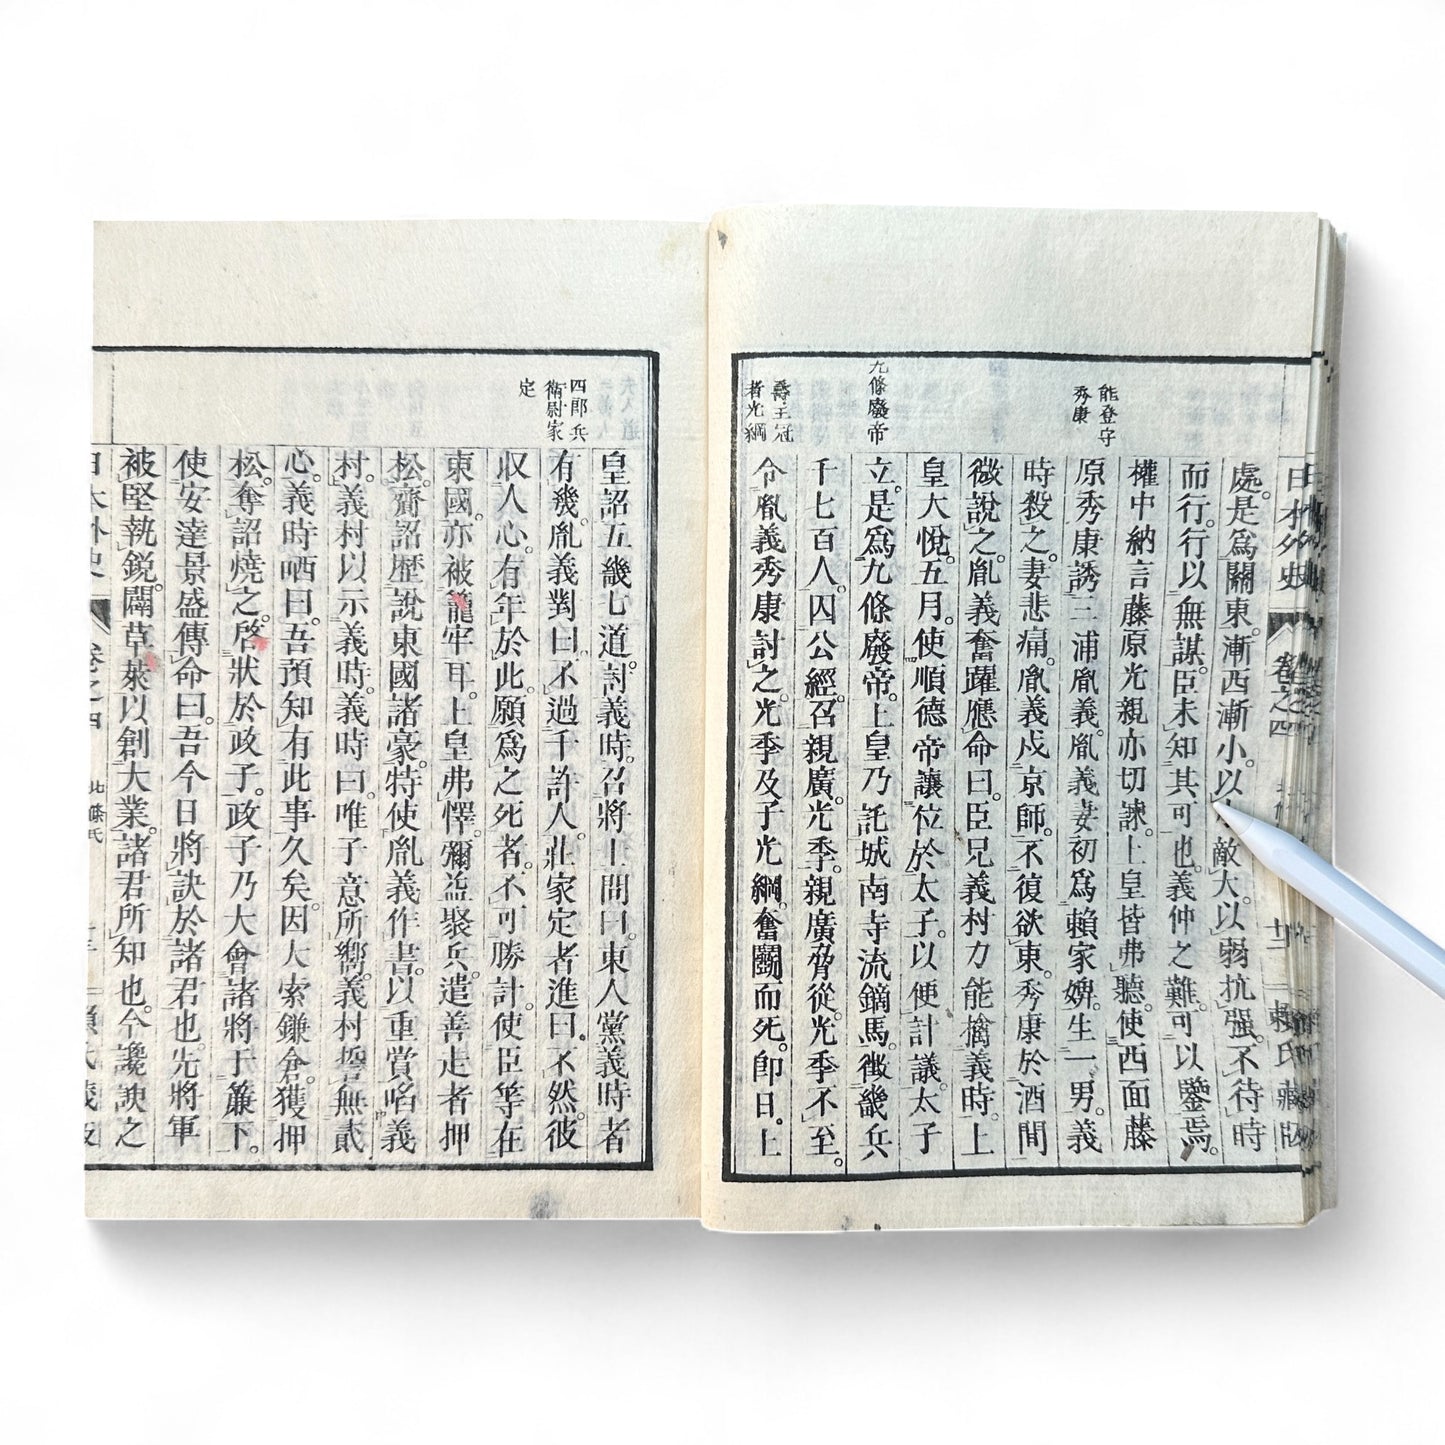 日本外史
卷之四
賴氏藏版
處。是爲關東。漸西漸小。以
敵大。以弱抗强。不待時
而行。行以無謀。臣未知其可也。義仲之難。可以鑒焉。
權中納言藤原光親亦切諫。上皇皆弗聽。使西面藤
原秀康誘三浦胤義。胤義妻初爲賴家婢。生一男。義
時殺之。妻悲痛。胤義戍京師。不復欲東。秀康於酒間
微說之。胤義奮躍應命曰。臣兄義村力能擒義時。上
皇大悅。五月。使順德帝讓位於太子。以便計議。太子
立。是爲九條廢帝。上皇乃託城南寺流鏑馬。徵畿兵
千七百人。囚公經。召親廣。光季。親廣脅從。光季不至。
令胤義秀康討之。光季及子光綱。奮鬪而死。卽日。上
能登守
秀康
九條廢帝
壽王冠
者光綱
皇詔五畿七道。討義時。召將士問曰。東人黨義時者
有幾。胤義對曰。不過千許人。莊家定者進曰。不然。彼
収人心。有年於此。願爲之死者。不可勝計。使臣等在
東國。亦被籠牢耳。上皇弗懌。彌益聚兵。遣善走者押
松。齎詔歷說東國諸豪。特使胤義作書。以重賞啗義
村。義村以示義時。義時曰。唯子意所嚮。義村誓無貳
心。義時哂曰。吾預知有此事久矣。因大索鎌倉。獲押
松。奪詔燒之。啓狀於政子。政子乃大會諸將于簾下。
使安達景盛傳命曰。吾今日將訣於諸君也。先將軍
被堅執銳。闢草萊以創大業。諸君所知也。今讒諛之
四郎兵
衛尉家
定
日本外史
卷之四
北條氏